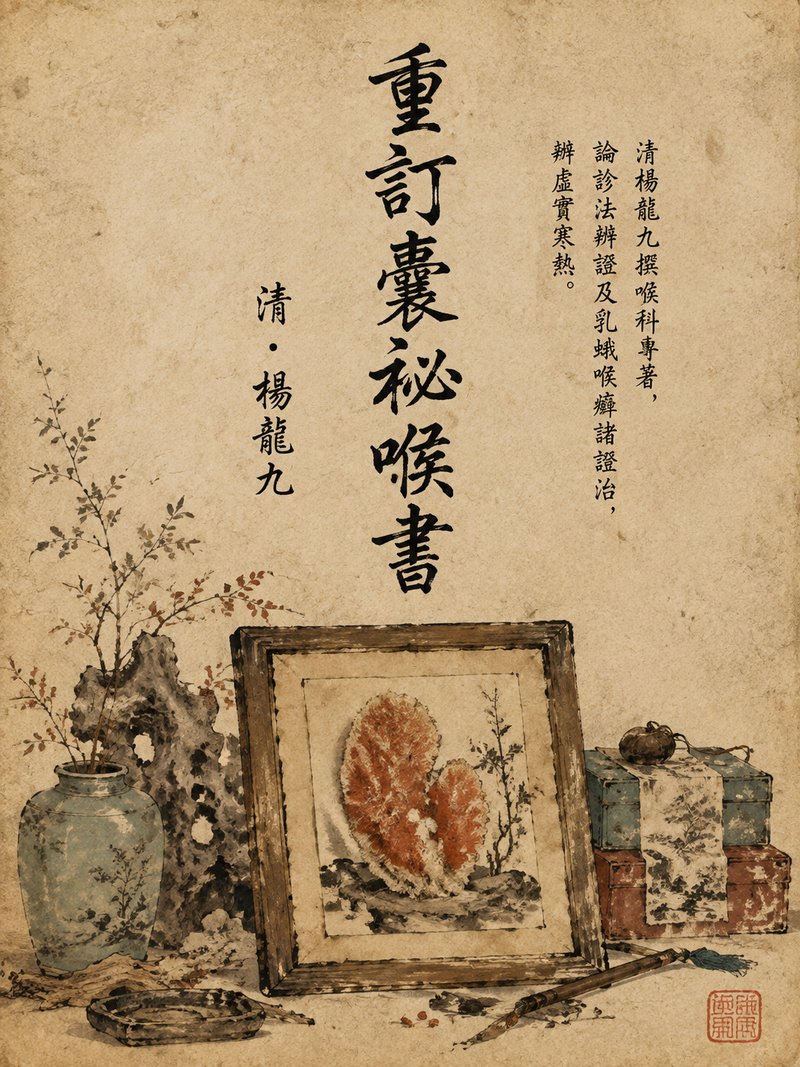 重訂囊祕喉書
清・楊龍九
清楊龍九撰喉科專著，
論診法辨證及乳蛾喉癬諸證治，
辨虛實寒熱。